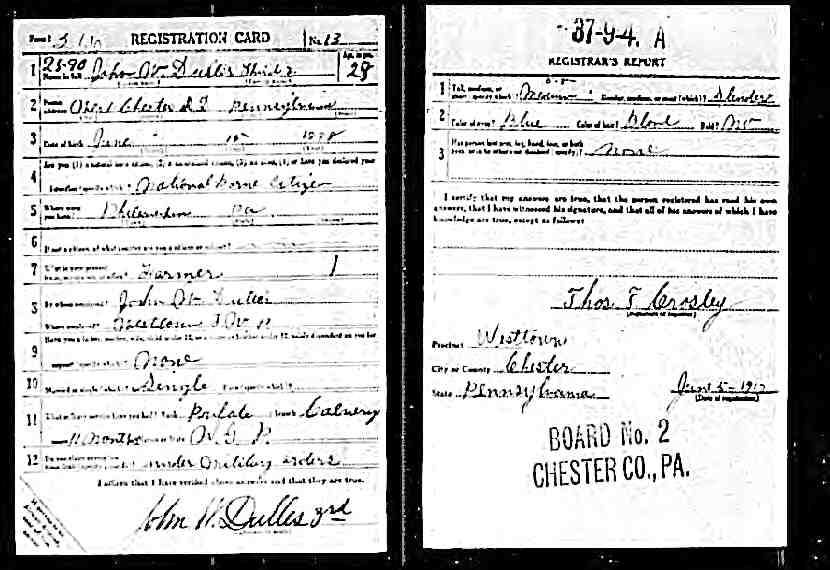 Form 1 REGISTRATION CARD No. 13
1 Name in full John W Dulles Third Age, in yrs. 28
2 Home address Chester Pennsylvania
3 Date of birth June 15
4 Are you (1) a natural born citizen, (2) a naturalized citizen, (3) an alien, (4) or have you declared your
intention (specify which)? National Borne Citizen
5 Where were you born? Philadelphia Pa
6 If not a citizen, of what country are you a citizen or subject?
7 What is your present trade, occupation, or office? Farmer 1
8 By whom employed? John W Dulles
Where employed?
9 Have you a father, mother, wife, child under 12, or a sister or brother under 12, solely dependent on you for
support (specify which)? None
10 Married or single (which)? Single Race (specify which)?
11 What military service have you had? Rank Private branch Calvery
years 11 months Nation or State N. G. P.
12 Do you claim exemption from draft (specify grounds)? under Military orders
I affirm that I have verified above answers and that they are true.
John W. Dulles 3rd
37-9-4. A
REGISTRAR'S REPORT
1 Tall, medium, or short (specify which)? Medium Slender, medium, or stout (which)? Slender
2 Color of eyes? Blue Color of hair? Blone Bald? No
3 Has person lost arm, leg, hand, foot, or both
eyes, or is he otherwise disabled (specify)? None
I certify that my answers are true, that the person registered has read his own
answers, that I have witnessed his signature, and that all of his answers of which I have
knowledge are true, except as follows:
Thos. T Crosley
(Signature of registrar)
Precinct Westtown
City or County Chester
State Pennsylvania June 5 - 1917
(Date of registration)
BOARD No. 2
CHESTER CO., PA.